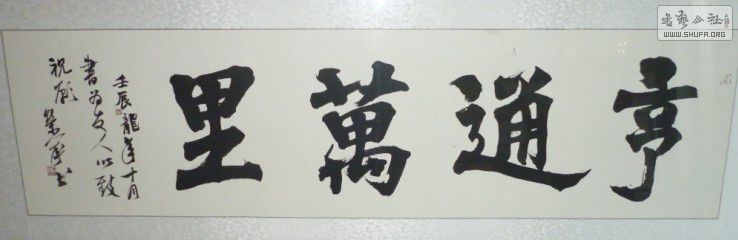 亨通萬里
壬辰龍年十月
書為友人以致
祝願
書藝公社
WWW.SHUFA.ORG